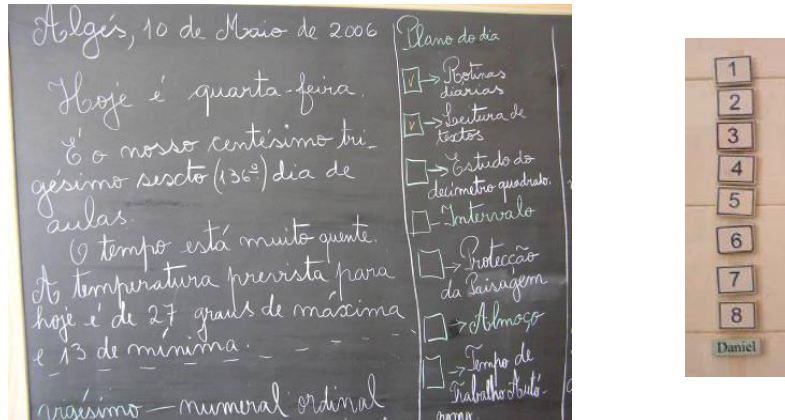 Algés, 10 de Maio de 2006
Hoje é quarta-feira.
É o nosso centésimo tri-
gésimo sexto (136º) dia de
aulas.
O tempo está muito quente.
A temperatura prevista para
hoje é de 27 graus de máxima
e 13 de mínima.
vigésimo — numeral ordinal
Plano do dia
v → Rotinas
diárias
v → Leitura de
textos
→ Estudo do
decímetro quadrado.
- Intervalo
→ Protecção
da Paisagem
→ Almoço
→ Tempo de
Trabalho Autó-
nomo.
1
2
3
4
5
6
7
8
Daniel